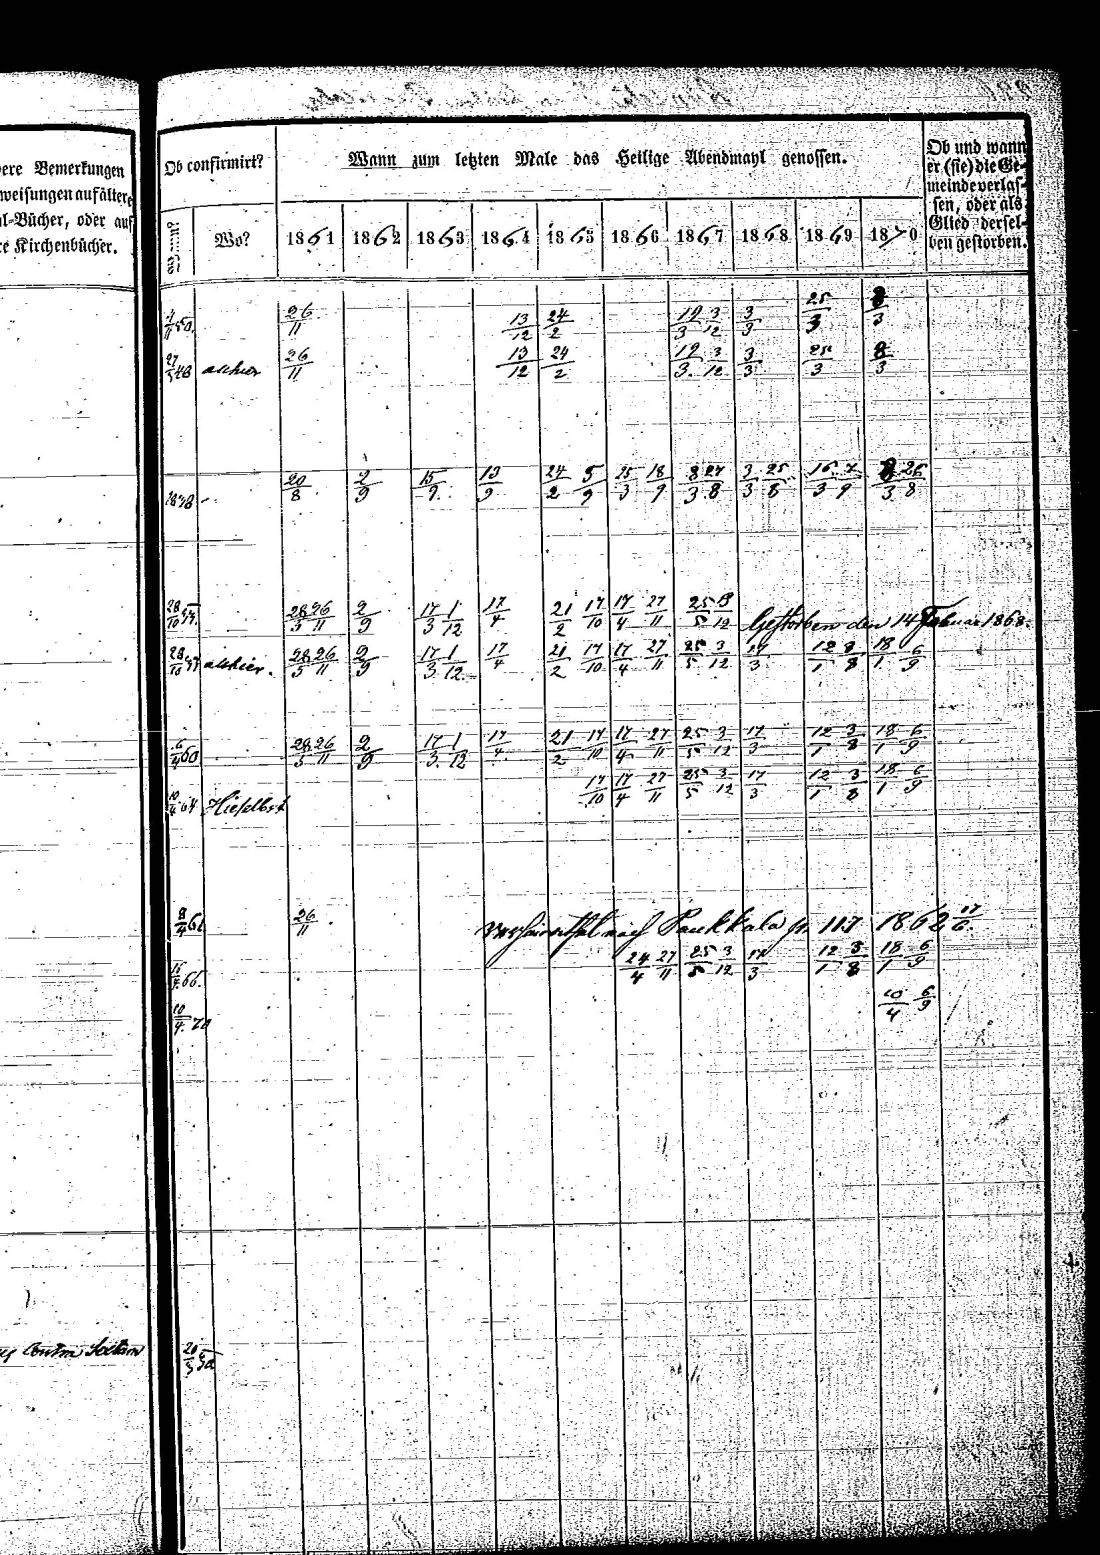 Bemerkungen
weisungen auf ältere
l-Bücher, oder auf
re Kirchenbücher.
Ob confirmirt?
Wann zum letzten Male das Heilige Abendmahl genossen.
Ob und wann
er (sie) die Ge-
meinde verlas-
sen, oder als
Glied dersel-
ben gestorben.
Wo?
1861 1862 1863 1864 1865 1866 1867 1868 1869 1870
26/11 13/12 24/2 19/3 3/12 3/3 25/3 8/3
27/5 48 allhier 26/11 13/12 24/2 19/3 3/12 3/3 25/3 8/3
1848 20/8 2/9 15/9 13/9 24/2 5/9 25/3 18/9 8/3 27/8 3/3 25/8 16/3 7/9 8/3 26/8
28/10 28/5 26/11 2/9 17/3 1/12 17/4 21/2 17/10 17/4 27/11 25/5 3/12 Gestorben den 14 Februar 1868.
28/10 47 allhier. 28/5 26/11 2/9 17/3 1/12 17/4 21/2 17/10 17/4 27/11 25/5 3/12 17/3 12/1 3/8 18/1 6/9
6/4 60 28/5 26/11 2/9 17/3 1/12 17/4 21/2 17/10 17/4 27/11 25/5 3/12 17/3 12/1 3/8 18/1 6/9
17/10 17/4 27/11 25/5 3/12 17/3 12/1 3/8 18/1 6/9
10/4 64 Hieselbst
8/4 61 26/11 verheirathet nach Paukkala 117 1862 17/6.
24/4 27/11 25/5 3/12 17/3 12/1 3/8 18/1 6/9
66.
10/4 6/9
10/4 70
Contra
20/5